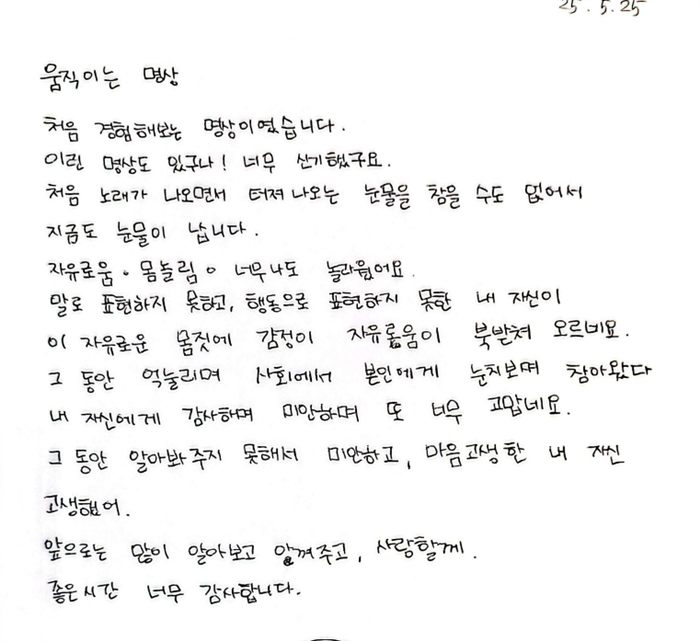 25. 5. 25
움직이는 명상
처음 경험해보는 명상이였습니다.
이런 명상도 있구나! 너무 신기했구요.
처음 노래가 나오면서 터져 나오는 눈물을 참을 수도 없어서
지금도 눈물이 납니다.
자유로움. 몸놀림. 너무나도 놀라웠어요.
말로 표현하지 못하고, 행동으로 표현하지 못한 내 자신이
이 자유로운 몸짓에 감정이 자유롭움이 북받쳐 오르네요.
그 동안 억눌리며 사회에서 본인에게 눈치보며 참아왔다
내 자신에게 감사하며 미안하며 또 너무 고맙네요.
그 동안 알아봐주지 못해서 미안하고, 마음고생한 내 자신
고생했어.
앞으로는 많이 알아보고 아껴주고, 사랑할께.
좋은시간 너무 감사합니다.